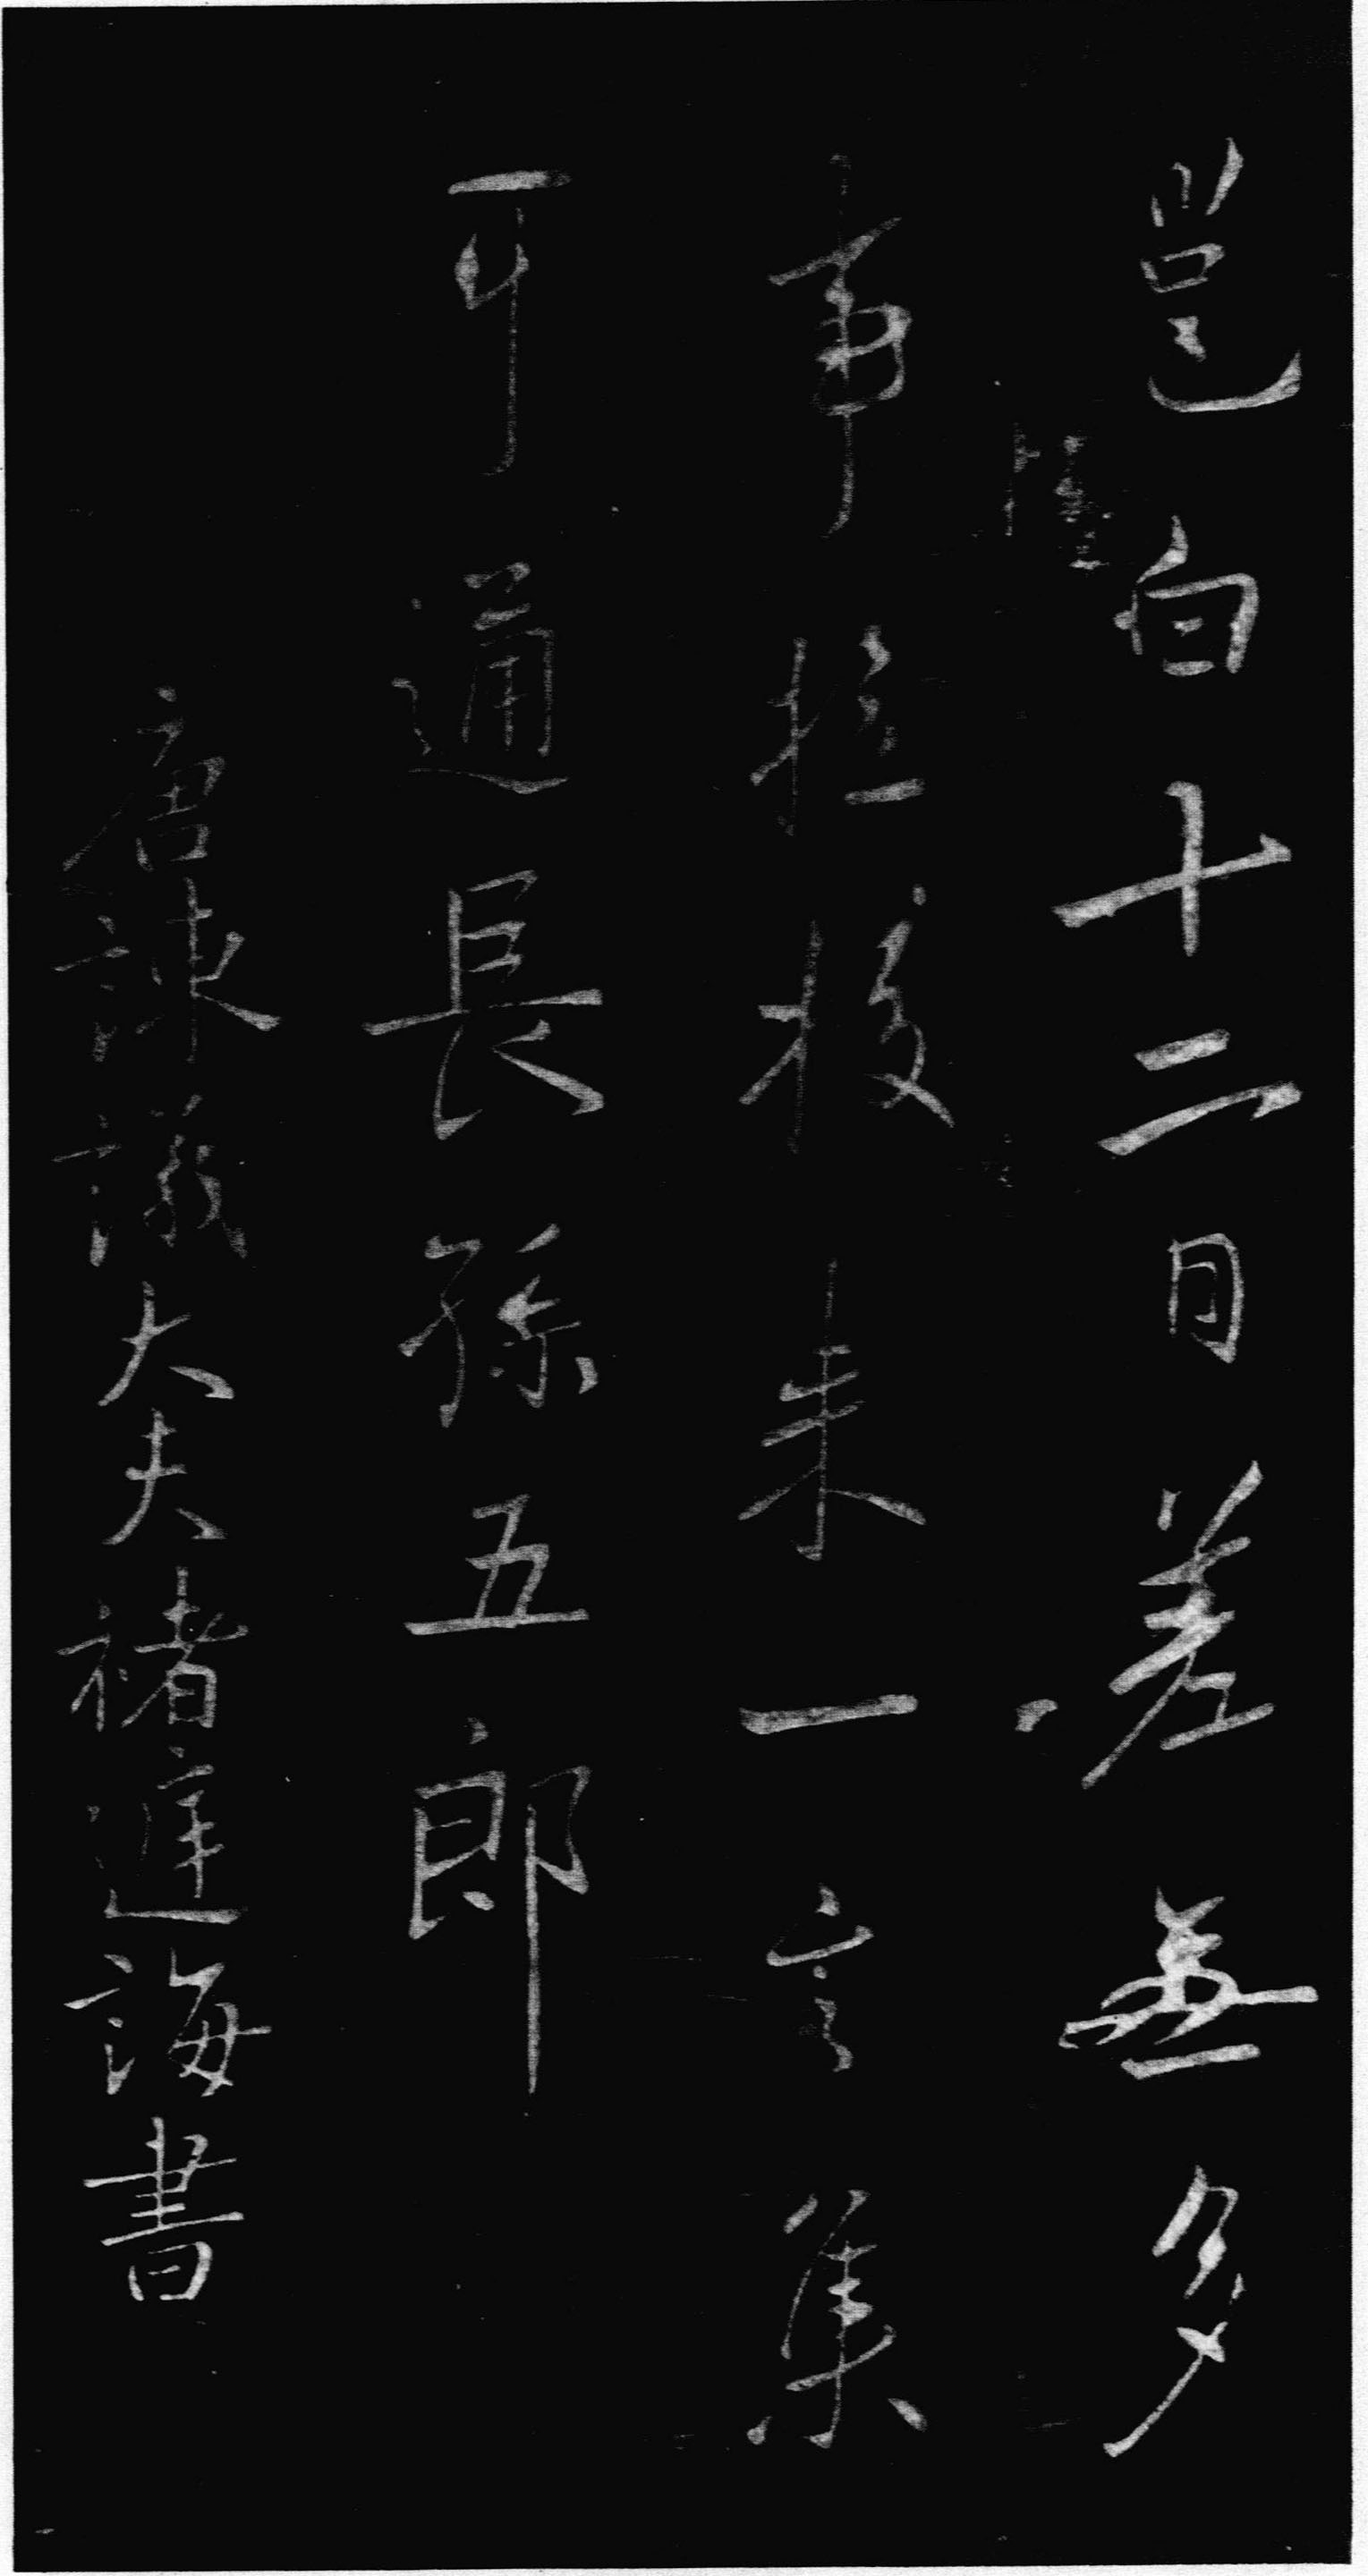 邕白十二日差無多
事拉校耒一言集
可通長孫五郎
唐諫議大夫褚庭誨書